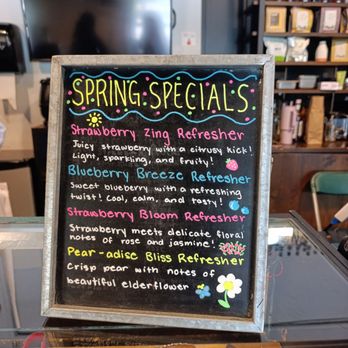 SPRING SPECIALS
Strawberry Zing Refresher
Juicy strawberry with a citrusy kick!
Light, sparkling, and fruity!
Blueberry Breeze Refresher
Sweet blueberry with a refreshing
twist! Cool, calm, and tasty!
Strawberry Bloom Refresher
Strawberry meets delicate floral
notes of rose and jasmine!
Pear-adise Bliss Refresher
Crisp pear with notes of
beautiful elderflower